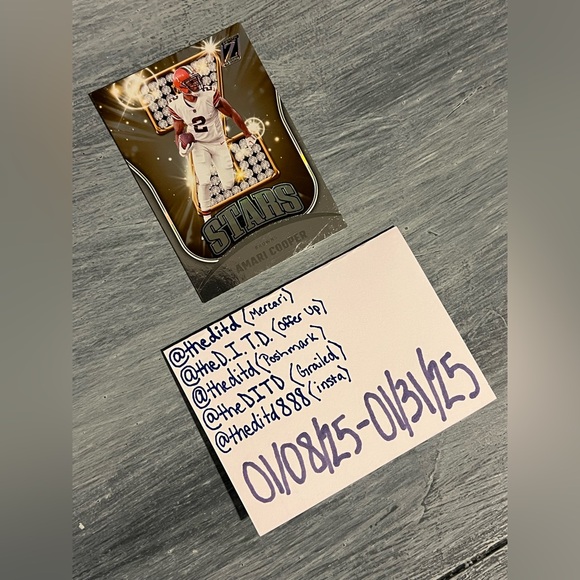 Z
2
STARS
AMARI COOPER
@theditd (Mercari)
@theD.I.T.D. (Offer Up)
@theditd (Poshmark)
@theDITD (Grailed)
@theditd888 (insta)
01/08/25-01/31/25